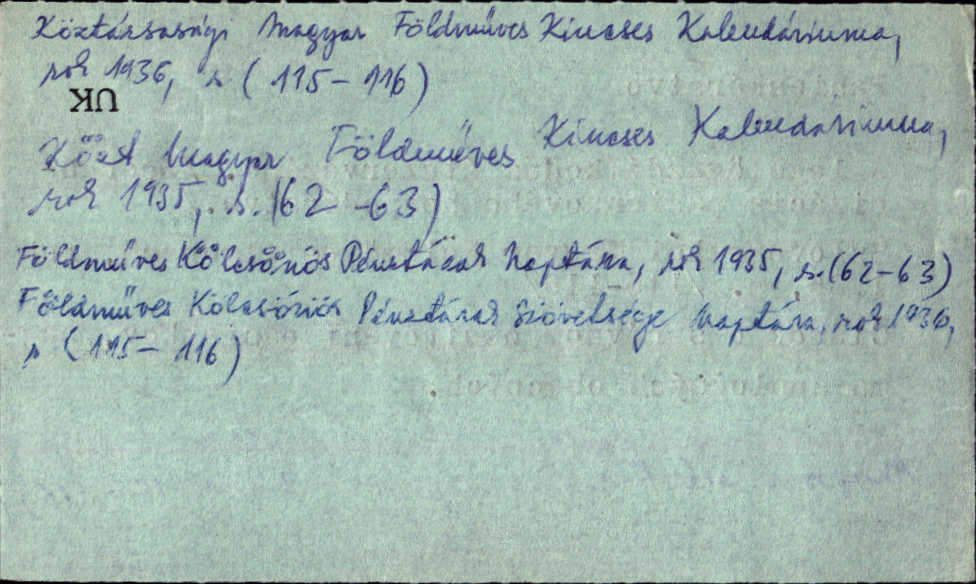 Köztársasági Magyar Földműves Kincses Kalendáriuma,
rok 1936, s (115-116)
UK
Közt Magyar Földműves Kincses Kalendáriuma,
rok 1935, s. (62-63)
Földműves Kölcsönös Pénztárak Naptára, rok 1935, s. (62-63)
Földműves Kölcsönös Pénztárak Szövetsége Naptára, rok 1936,
s (115-116)